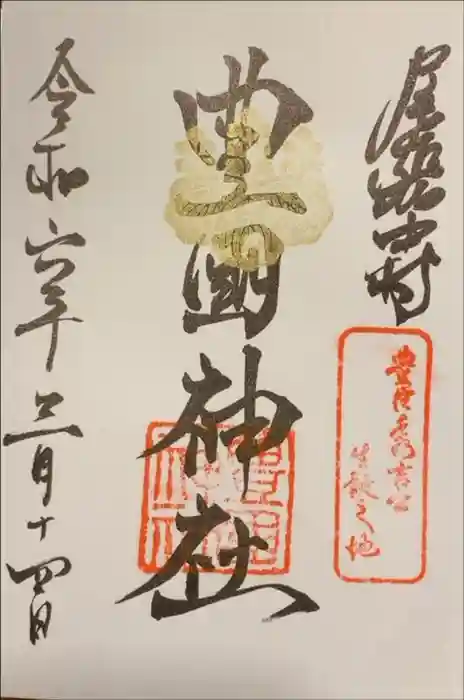 尾張中村
豊臣秀吉公
生誕之地
豊國神社
令和六年三月十四日